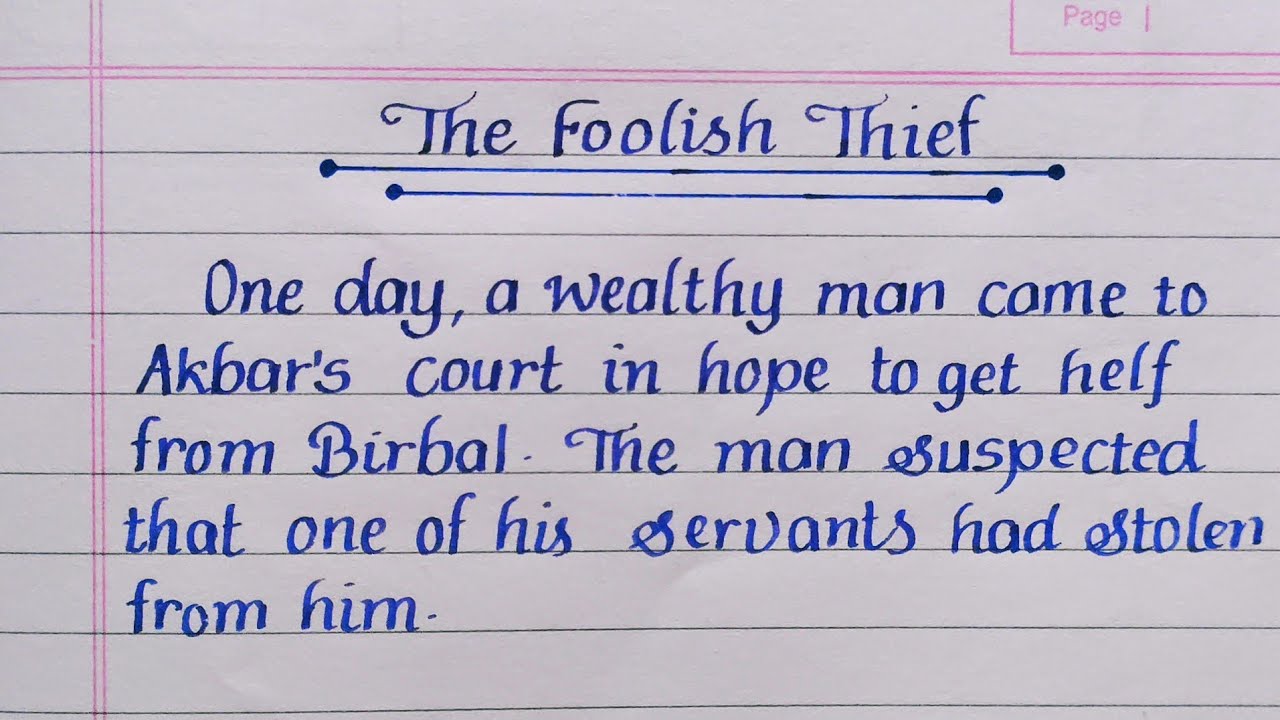 Page |
The Foolish Thief
One day, a wealthy man came to
Akbar's court in hope to get helf
from Birbal. The man suspected
that one of his servants had stolen
from him.